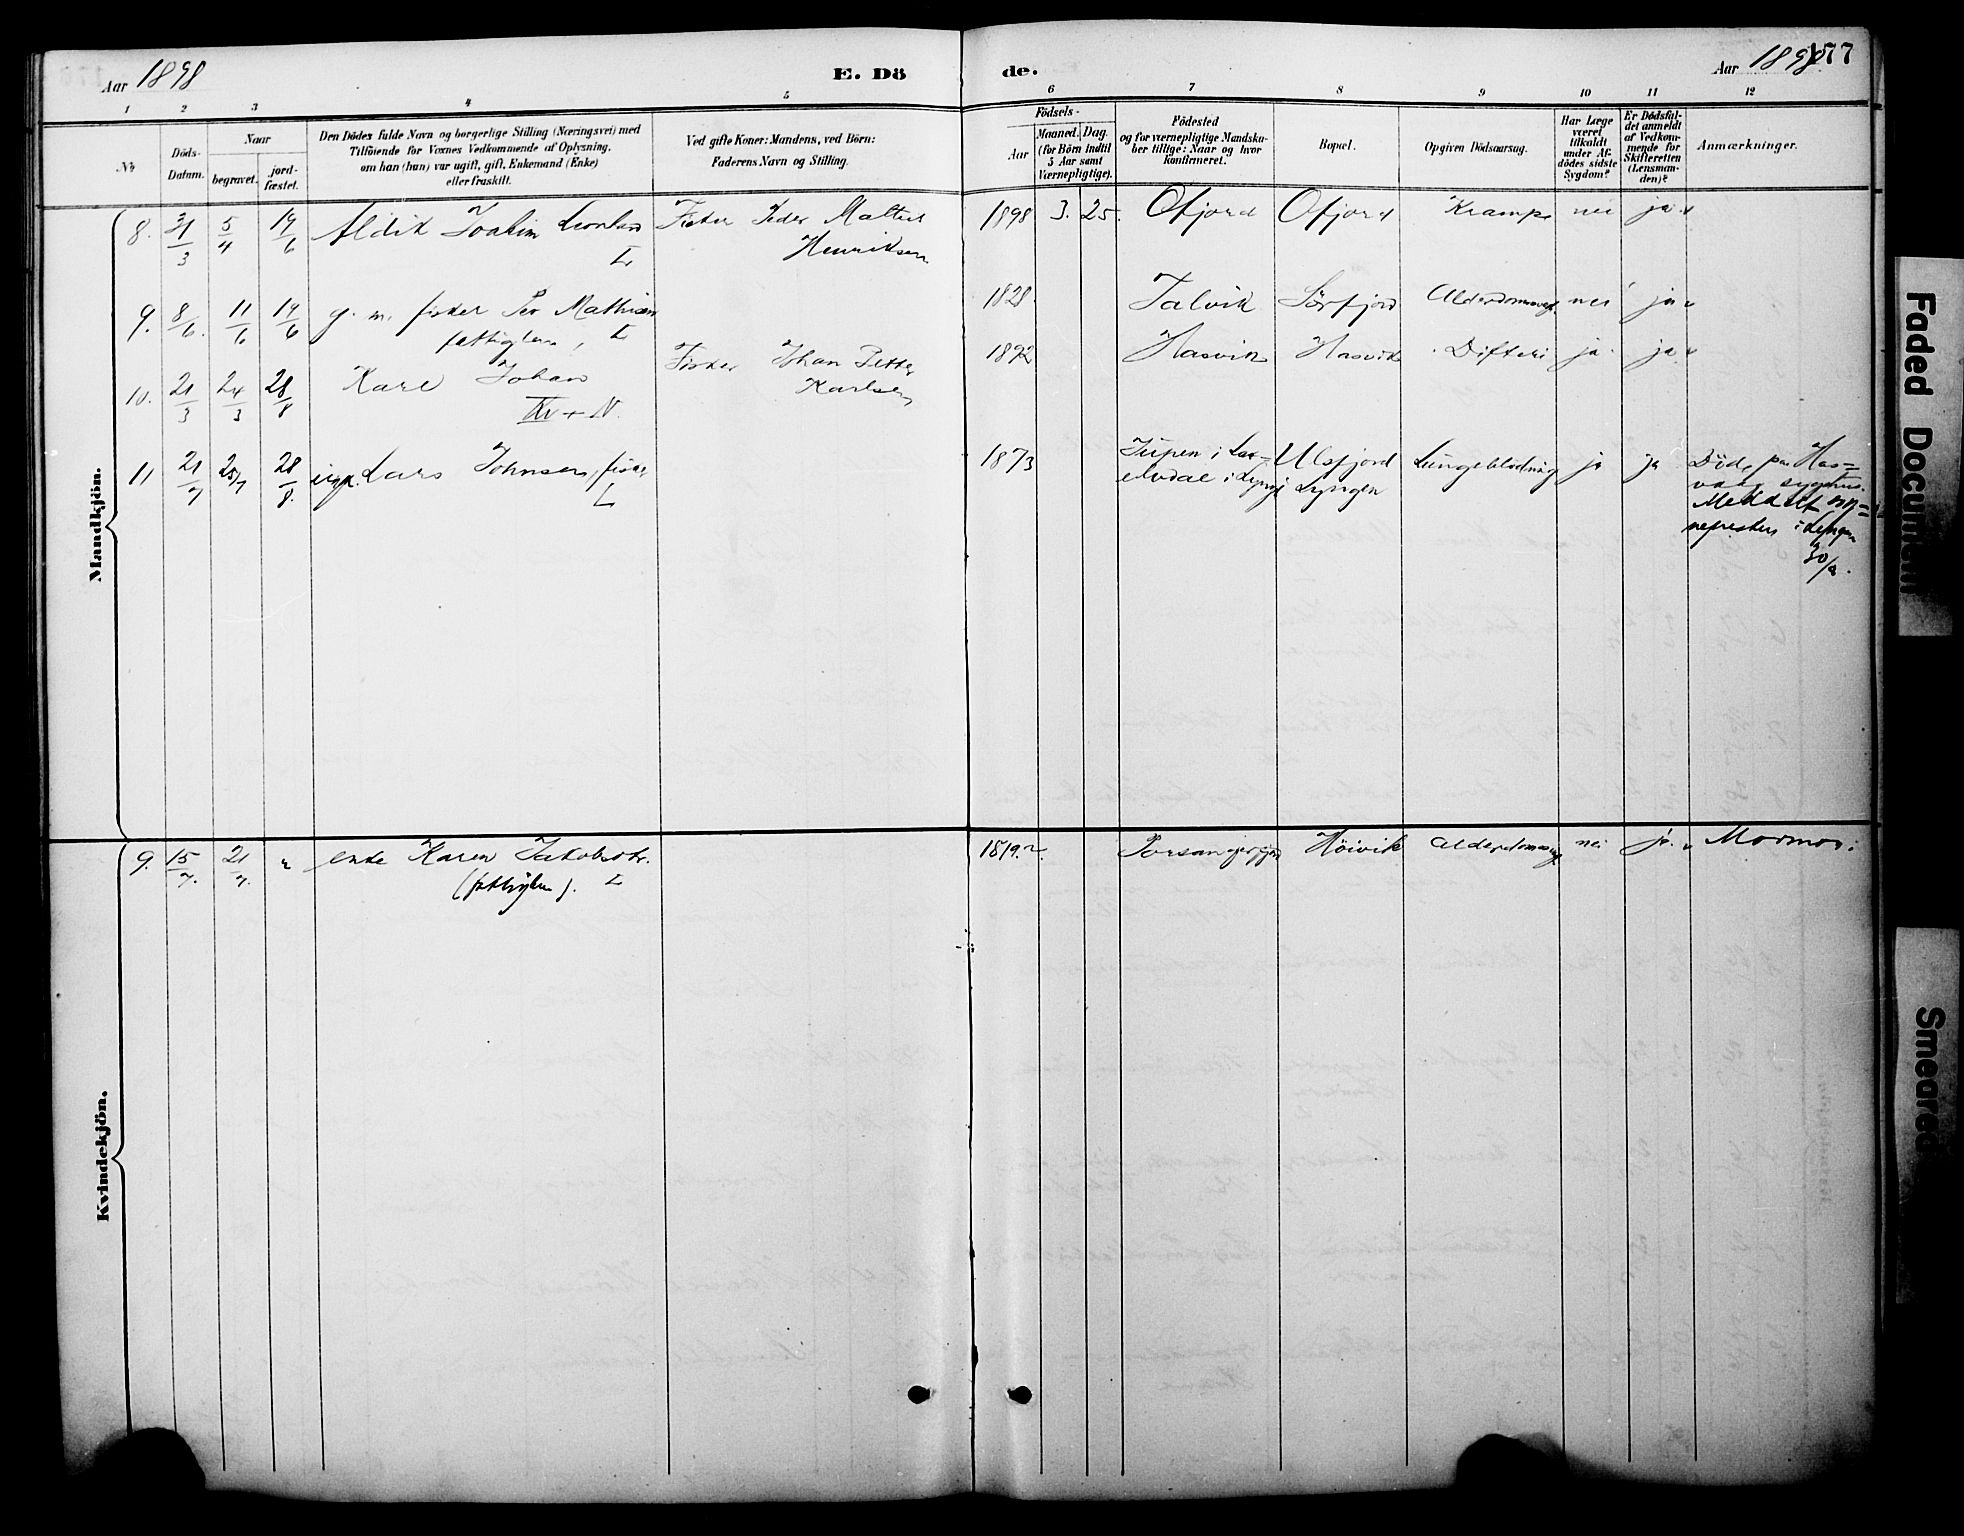 Aar 1898
E. Dö
de.
Aar 1898.
177
1 2 3 4 5 6 7 8 9 10 11 12
No
Döds-
Datum.
Naar
begravet.
jord-
fæstet.
Den Dödes fulde Navn og borgerlige Stilling (Næringsvei) med
Tilföiende for Voxnes Vedkommende af Oplysning,
om han (hun) var ugift, gift, Enkemand (Enke)
eller fraskilt.
Ved gifte Koner: Mandens, ved Börn:
Faderens Navn og Stilling.
Födsels-
Aar
Maaned. Dag.
(for Börn indtil
5 Aar samt
Værnepligtige).
Födested
og for værnepligtige Mandska-
ber tillige: Naar og hvor
Konfirmeret.
Bopæl.
Opgiven Dödsaarsag.
Har Læge
været
tilkaldt
under Af-
dödes sidste
Sygdom?
Er Dödsfal-
det anmeldt
af Vedkom-
mende for
Skifteretten
(Lensman-
den)?
Anmærkninger.
Mandkjön.
8. 31/3 5/4 19/6 Aldik Joakim Fisker Peder Maltus 1898 3. 25. Ofjord Ofjord Krampe nei ja
L. Henriksen
9. 8/6. 11/6 19/6 g. m. fisker Per Mathisen 1828 Talvik Sörfjord nei ja
fattiglem, L
10. 21/3 24/3 28/8 Karl Johan Fisker Johan Petter 1892 Hasvik Hasvik Difteri ja ja
+ N. Karlsen
11 21/7 25/7 28/8. ugk. Lars Johnsen, fisker 1873 i Ulsfjord Lungeblödning ja ja Död paa Has=
L i Lyngen vaag sygehus.
Meddelt
i Lyngen
30/8.
Kvindekjön.
9. 15/7. 21/7. " enke Karen Jakobsdtr. 1819. Porsangerfjord Höivik nei ja. Mormor.
(fattiglem). L
Faded Document
Smeared